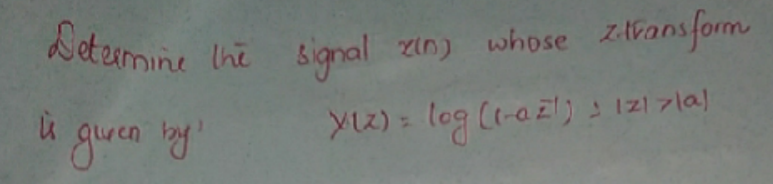 Determine the signal x(n) whose z-transform
is given by' X(z) = log (1-az⁻¹) ; |z| > |a|